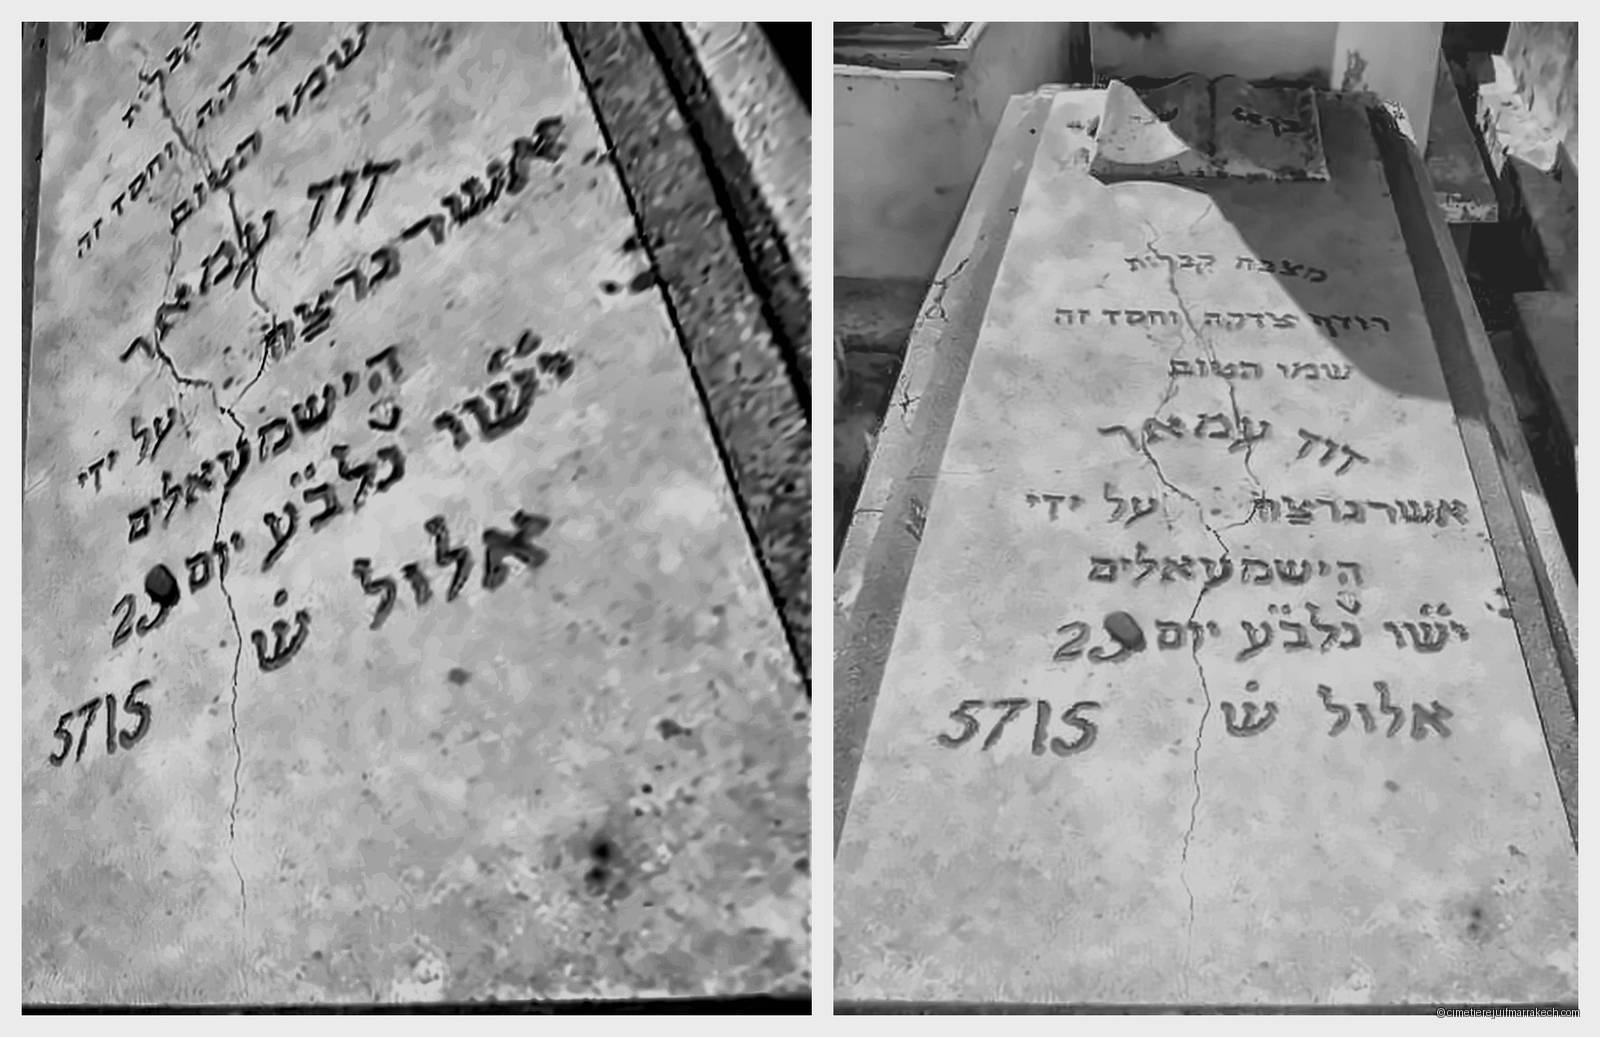 קברית
צדקה וחסד זה
שמו הטום
דוד עמאר
אשר נרצח על ידי
הישמעאלים
יש״ו נלב״ע יום 29
אלול ש׳ 5715
מצבת קברית
רודף צדקה וחסד זה
שמו הטום
דוד עמאר
אשר נרצח על ידי
הישמעאלים
יש״ו נלב״ע יום 29
אלול ש׳ 5715
©cimetierejuifmarrakech.com